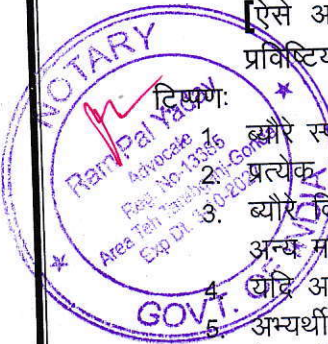 [ऐसे अ
प्रविष्टिय
टिप्पण:
1. ब्यौरे स्
2. प्रत्येक
3. ब्यौरे वि
अन्य म
4. यदि अ
5. अभ्यर्थी
NOTARY
Ram Pal Yadav
Advocate
Reg. No-13386
Area Teh
GOVT. OF